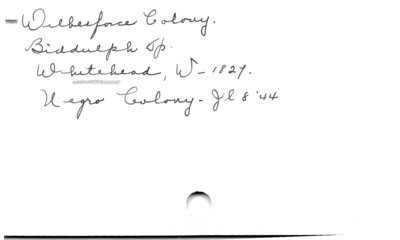 Wilbesforce Colony.
Biddulph Tp.
Whitehead, W - 1827.
Negro Colony - Jl 8 '44